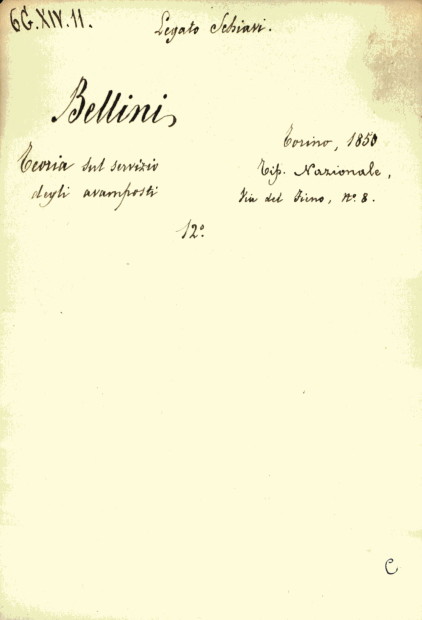 6G.XIV.11.
Legato Schiavi.
Bellini,
Teoria sul servizio
degli avamposti
Torino, 1850
Tip. Nazionale,
Via del Fieno, Nº. 8.
12º
C